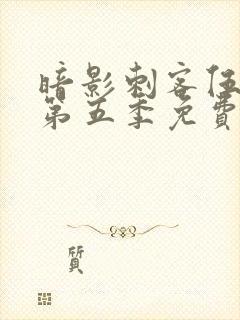 暗影刺客伍
第五季免費
質